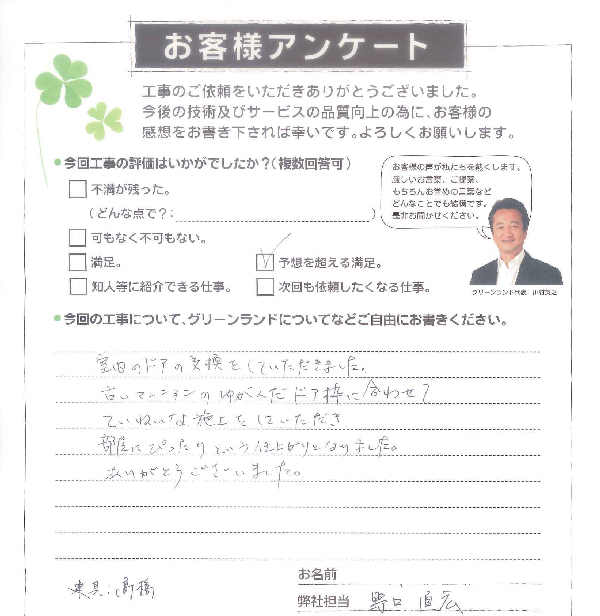 お客様アンケート
工事のご依頼をいただきありがとうございました。
今後の技術及びサービスの品質向上の為に、お客様の
感想をお書き下されば幸いです。よろしくお願いします。
今回工事の評価はいかがでしたか?(複数回答可)
不満が残った。
(どんな点で?:
)
可もなく不可もない。
満足。
予想を超える満足。
知人等に紹介できる仕事。
次回も依頼したくなる仕事。
お客様の声が私たちを熱くします。
厳しいお言葉、ご提案、
もちろんお誉めの言葉など
どんなことでも結構です。
是非お聞かせください。
グリーンランド代表
今回の工事について、グリーンランドについてなどご自由にお書きください。
室内のドアの交換をしていただきました。
古いマンションのゆがんだドア枠に合わせて
ていねいな施工をしていただき
部屋にぴったりという仕上がりとなりました。
ありがとうございました。
お名前
建具:高橋様
弊社担当 野口 直宏